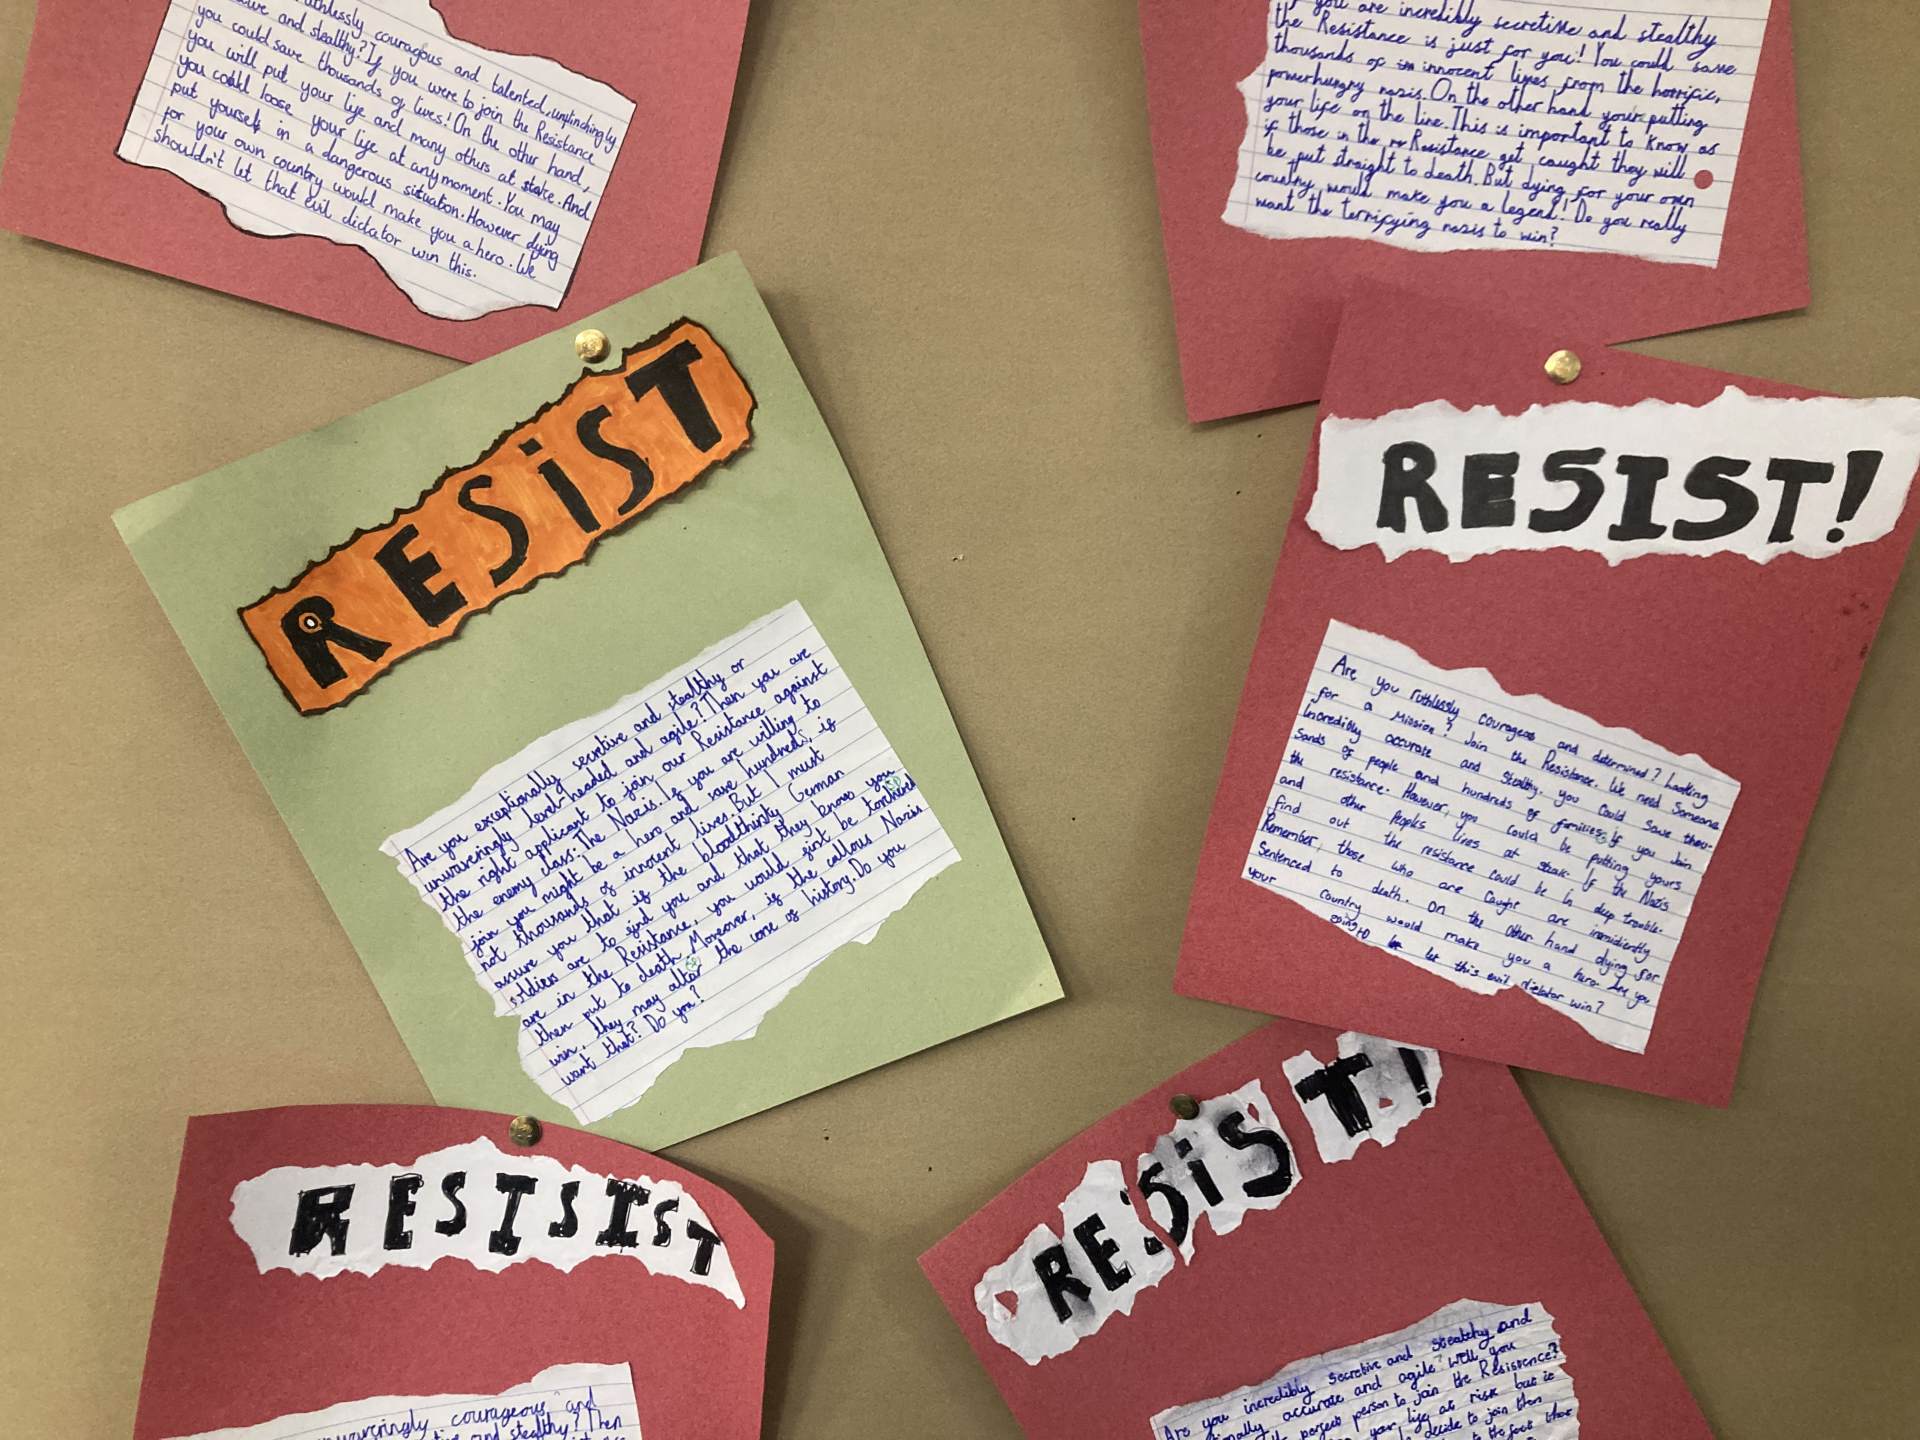 thlessly courageous and talented, unflinchingly
and stealthy? If you were to join the Resistance
you could save thousands of lives! On the other hand,
you will put your life and many others at stake. And
you could loose your life at any moment. You may
put yourself in a dangerous situation. However dying
for your own country would make you a hero. We
shouldn't let that evil dictator win this.
you are incredibly secretive and stealthy
the Resistance is just for you! You could save
thousands of innocent lives from the horrific,
powerhungry nazis. On the other hand your putting
your life on the line. This is important to know as
if those in the Resistance get caught they will
be put straight to death. But dying for your own
country would make you a legend! Do you really
want the terrifying nazis to win?
RESiST
Are you exceptionally secretive and stealthy or
unwaveringly level-headed and agile? Then you are
the right applicant to join our Resistance against
the enemy class: The Nazis. If you are willing to
join you might be a hero and save hundreds, if
not thousands of innocent lives. But I must
assure you that if the bloodthirsty German
soldiers are to find you and that they know you
are in the Resistance, you would first be tortured
then put to death. Moreover, if the callous Nazis
win, they may alter the core of history. Do you
want that? Do you?
RESIST!
Are you ruthlessly courageos and determined? Looking
for a mission? Join the Resistance. We need someone
Incredibly accurate and stealthy. you Could Save thou-
sands of people and hundreds of families. If you Join
the resistance. However, you could be putting yours
and other Peoples lives at steak. If the Nazis
find out the resistance could be in deep trouble.
Remember, those who are Caught are immidiently
Sentenced to death. On the other hand dying for
your country would make you a hero. Are you
going to let this evil dictator win?
RESISIST
unwaveringly courageous and
and stealthy? Then
RESiST!
Are you incredibly Secretive and stealthy and
accurate and agile? Well you
person to join the Resistence?
your life at risk but if
decide to join then
to the fact that